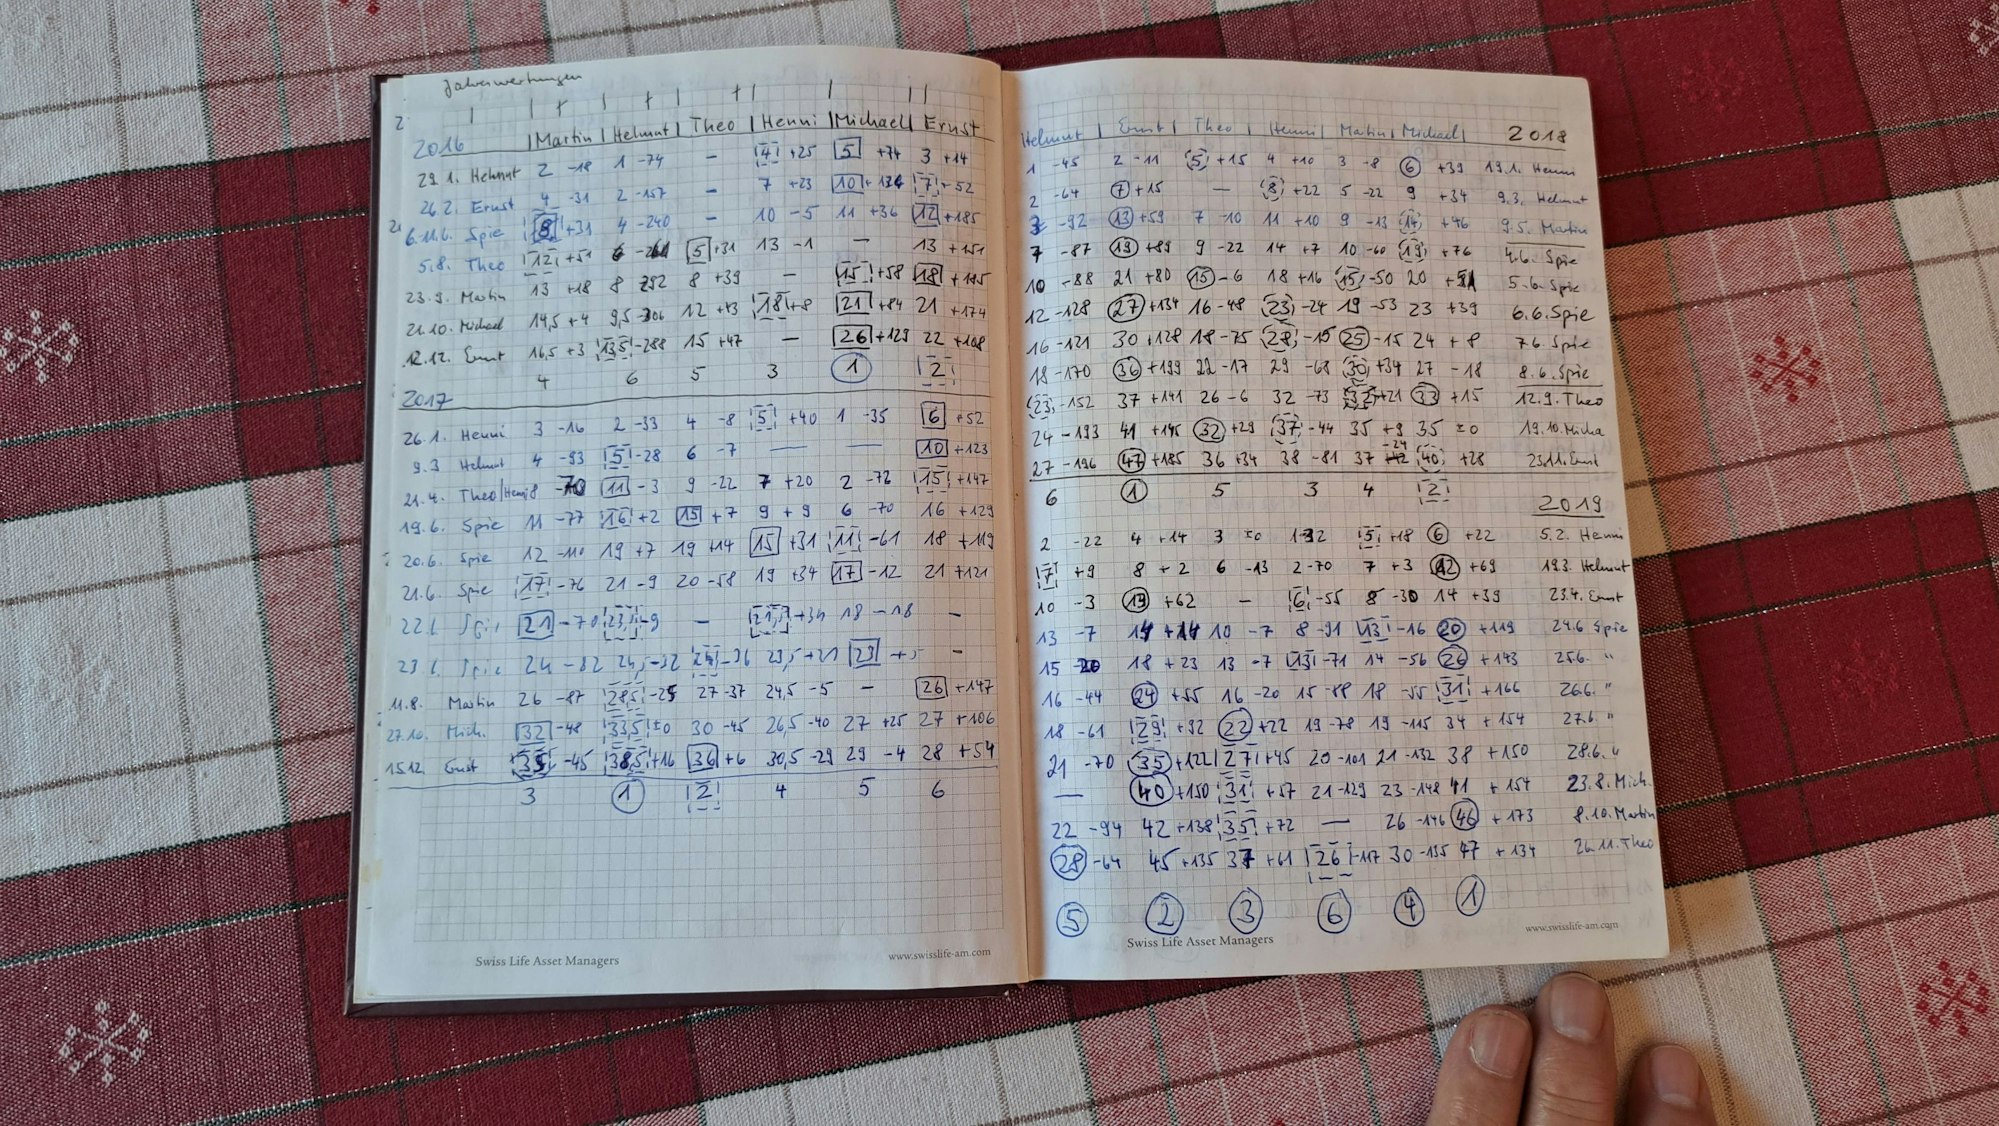 Jahreswertungen
2016 | Martin | Helmut | Theo | Henni | Michael | Ernst
29.1. Helmut 2 -18 1 -74 – 4 +25 5 +74 3 +14
26.2. Ernst 4 -31 2 -157 – 7 +23 10 +134 7 +52
6.11.6. Spie 8 +31 4 -240 – 10 -5 11 +36 12 +185
5.8. Theo 12 +51 6 5 +31 13 -1 – 13 +151
23.9. Martin 13 +18 8 292 8 +39 – 15 +58 18 +185
21.10. Michael 14,5 +4 9,5 -306 12 +43 18 +8 21 +84 21 +174
12.12. Ernst 16,5 +3 13,5 -288 15 +47 – 26 +129 22 +108
4 6 5 3 1 2
2017
26.1. Henni 3 -16 2 -33 4 -8 5 +40 1 -35 6 +52
9.3 Helmut 4 -93 5 -28 6 -7 – – 10 +123
21.4. Theo/Henni 8 -70 11 -3 9 -22 7 +20 2 -72 15 +147
19.6. Spie 11 -77 16 +2 15 +7 9 +9 6 -70 16 +129
20.6. Spie 12 -110 19 +7 19 +14 15 +31 11 -61 18 +119
21.6. Spie 17 -76 21 -9 20 -58 19 +34 17 -12 21 +121
22.6. Spie 21 -70 23,5 -9 – 21,5 +34 18 -18 –
23.6. Spie 24 -82 24,5 -32 24 -36 23,5 +21 23 +5 –
11.8. Martin 26 -87 28,5 -25 27 -37 24,5 -5 – 26 +147
27.10. Mich. 32 -48 33,5 ±0 30 -45 26,5 -40 27 +25 27 +106
15.12. Ernst 35 -45 38,5 +16 36 +6 30,5 -29 29 -4 28 +54
3 1 2 4 5 6
Swiss Life Asset Managers www.swisslife-am.com
Helmut | Ernst | Theo | Henni | Martin | Michael | 2018
1 -45 2 -11 5 +15 4 +10 3 -8 6 +39 19.1. Henni
2 -64 7 +15 – 8 +22 5 -22 9 +34 9.3. Helmut
3 -92 13 +59 7 -10 11 +10 9 -13 14 +46 9.5. Martin
7 -87 19 +89 9 -22 14 +7 10 -60 19 +76 4.6. Spie
10 -88 21 +80 15 -6 18 +16 15 -50 20 +51 5.6. Spie
12 -128 27 +134 16 -48 23 -24 19 -53 23 +39 6.6. Spie
16 -121 30 +128 18 -75 28 -15 25 -15 24 +8 7.6. Spie
18 -170 36 +199 22 -17 29 -68 30 +34 27 -18 8.6. Spie
23 -152 37 +141 26 -6 32 -73 32 +21 33 +15 12.9. Theo
24 -193 41 +145 32 +29 37 -44 35 +9 35 ±0 19.10. Micha
27 -196 47 +185 36 +34 38 -81 37 -24 40 +28 23.11. Ernst
6 1 5 3 4 2
2019
2 -22 4 +14 3 ±0 1 -32 5 +18 6 +22 5.2. Henni
7 +9 8 +2 6 -13 2 -70 7 +3 12 +69 19.3. Helmut
10 -3 13 +62 – 6 -55 8 -30 14 +39 23.4. Ernst
13 -7 14 +14 10 -7 8 -91 13 -16 20 +119 24.6 Spie
15 -20 18 +23 13 -7 13 -71 14 -56 26 +143 25.6. "
16 -44 24 +55 16 -20 15 -88 18 -55 31 +166 26.6. "
18 -61 29 +92 22 +22 19 -78 19 -115 34 +154 27.6. "
21 -70 35 +122 27 +45 20 -101 21 -132 38 +150 28.6. "
– 40 +150 31 +57 21 -129 23 -148 41 +154 23.8. Mich.
22 -94 42 +138 35 +72 – 26 -146 46 +173 8.10. Martin
28 -64 45 +135 37 +61 26 -117 30 -135 47 +134 26.11. Theo
5 2 3 6 4 1
Swiss Life Asset Managers www.swisslife-am.com